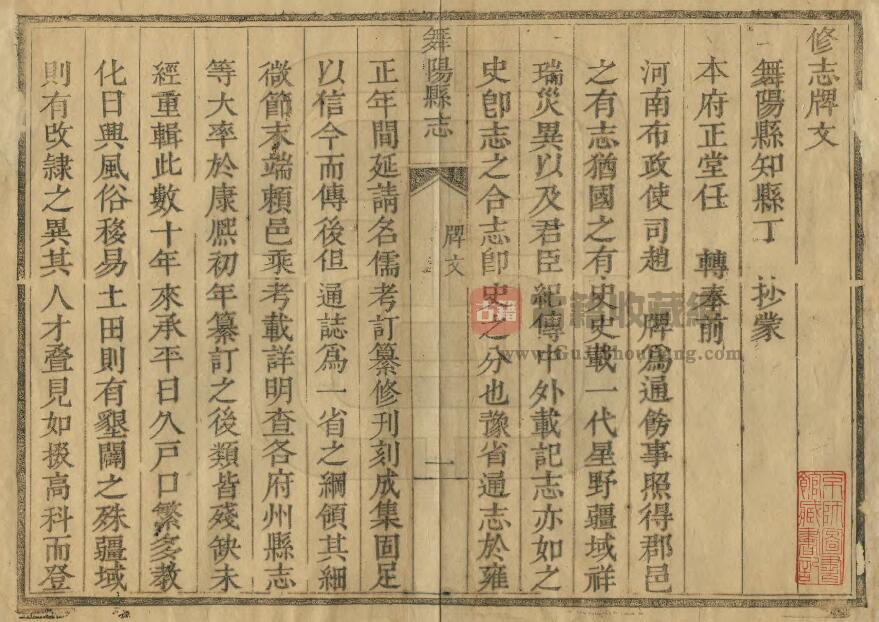 修志牌文
舞陽縣知縣丁　抄蒙
本府正堂任　轉奉前
河南布政使司趙　牌爲通飭事照得郡邑
之有志猶國之有史史載一代星野疆域祥
瑞災異以及君臣紀傳中外載記志亦如之
史卽志之合志卽史之分也豫省通志於雍
舞陽縣志　牌文　一
正年間延請名儒考訂纂修刊刻成集固足
以信今而傳後但通誌爲一省之綱領其細
微節末端賴邑乘考載詳明查各府州縣志
等大率於康熈初年纂訂之後類皆殘缺未
經重輯此數十年來承平日久戶口繁多教
化日興風俗移易土田則有墾闢之殊疆域
則有改隷之異其人才疊見如掇高科而登
京師圖書
館藏書記
古籍
古籍收藏網
www.GuJiShouCang.com